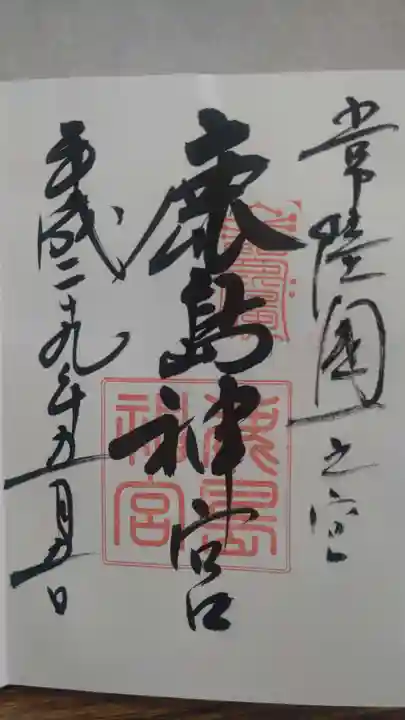 常陸國一之宮
鹿島神宮
平成二十九年五月五日
鹿島神宮